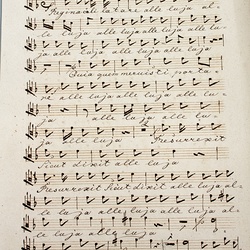 Regina caeli laetare alle luja al-
le luja alle luja alle luja alle lu-
ja alle luja alle luja
Quia quem meruisti porta-
re alle luja alle luja alle lu-
ja alle luja Resurrexit
Sicut dixit alle luja
Resurrexit Sicut dixit alle luja al-
le luja alle luja alle luja al-
le luja alle luja alle luja